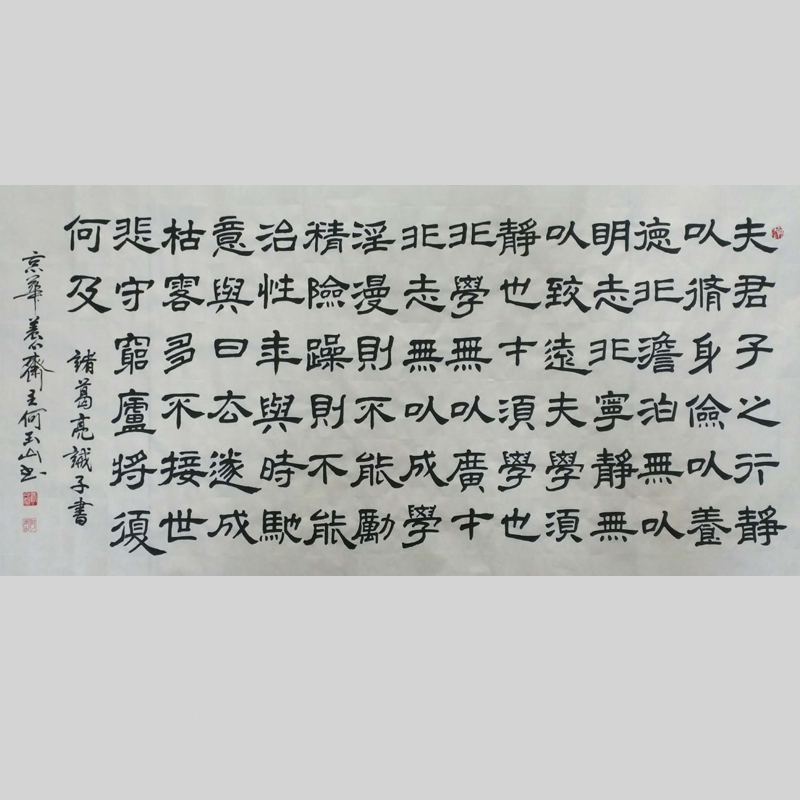 夫君子之行靜
以脩身儉以養
德非澹泊無以
明志非寧靜無
以致遠夫學須
靜也才須學也
非學無以廣才
非志無以成學
淫漫則不能勵
精險躁則不能
治性年與時馳
意與日去遂成
枯落多不接世
悲守窮廬將復
何及
諸葛亮誡子書
京華養心齋主何玉山书